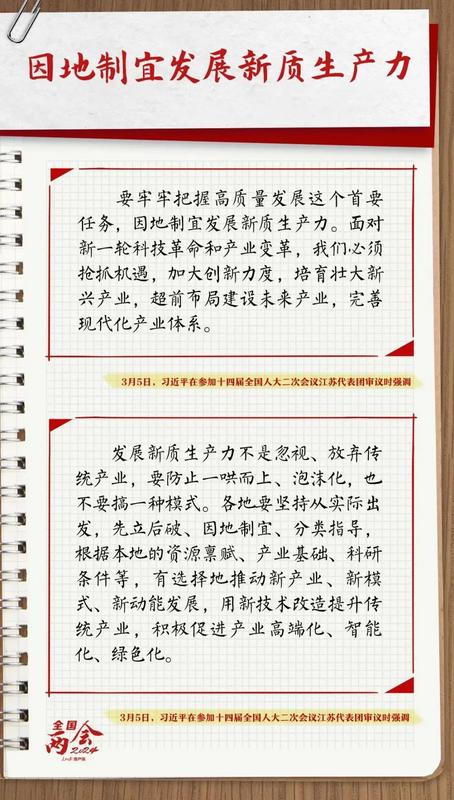 因地制宜发展新质生产力
要牢牢把握高质量发展这个首要
任务，因地制宜发展新质生产力。面对
新一轮科技革命和产业变革，我们必须
抢抓机遇，加大创新力度，培育壮大新
兴产业，超前布局建设未来产业，完善
现代化产业体系。
3月5日，习近平在参加十四届全国人大二次会议江苏代表团审议时强调
发展新质生产力不是忽视、放弃传
统产业，要防止一哄而上、泡沫化，也
不要搞一种模式。各地要坚持从实际出
发，先立后破、因地制宜、分类指导，
根据本地的资源禀赋、产业基础、科研
条件等，有选择地推动新产业、新模
式、新动能发展，用新技术改造提升传
统产业，积极促进产业高端化、智能
化、绿色化。
3月5日，习近平在参加十四届全国人大二次会议江苏代表团审议时强调
全国
两会
2024